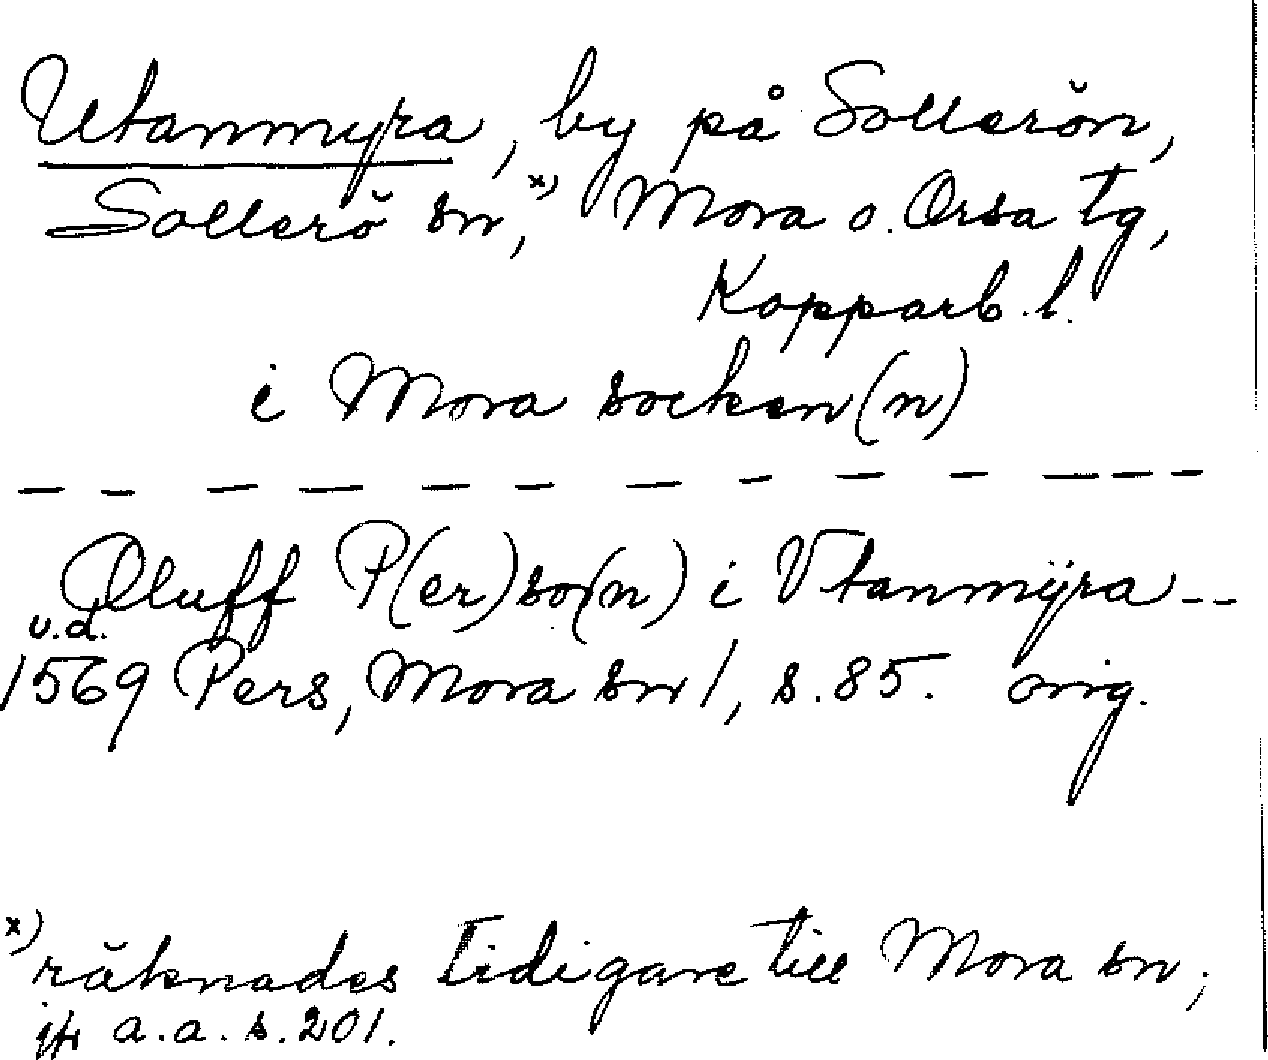 Utanmyra, by på Sollerön,
Sollerö sn,x) Mora o. Orsa tg,
Kopparb. l.
i Mora socken(n)
— — — — — — — — — — — — —
Oluff P(er)so(n) i Vtanmÿra --
u.d.
1569 Pers, Mora sn 1, s. 85. orig.
x)
räknades tidigare till Mora sn;
jfr a.a. s. 201.